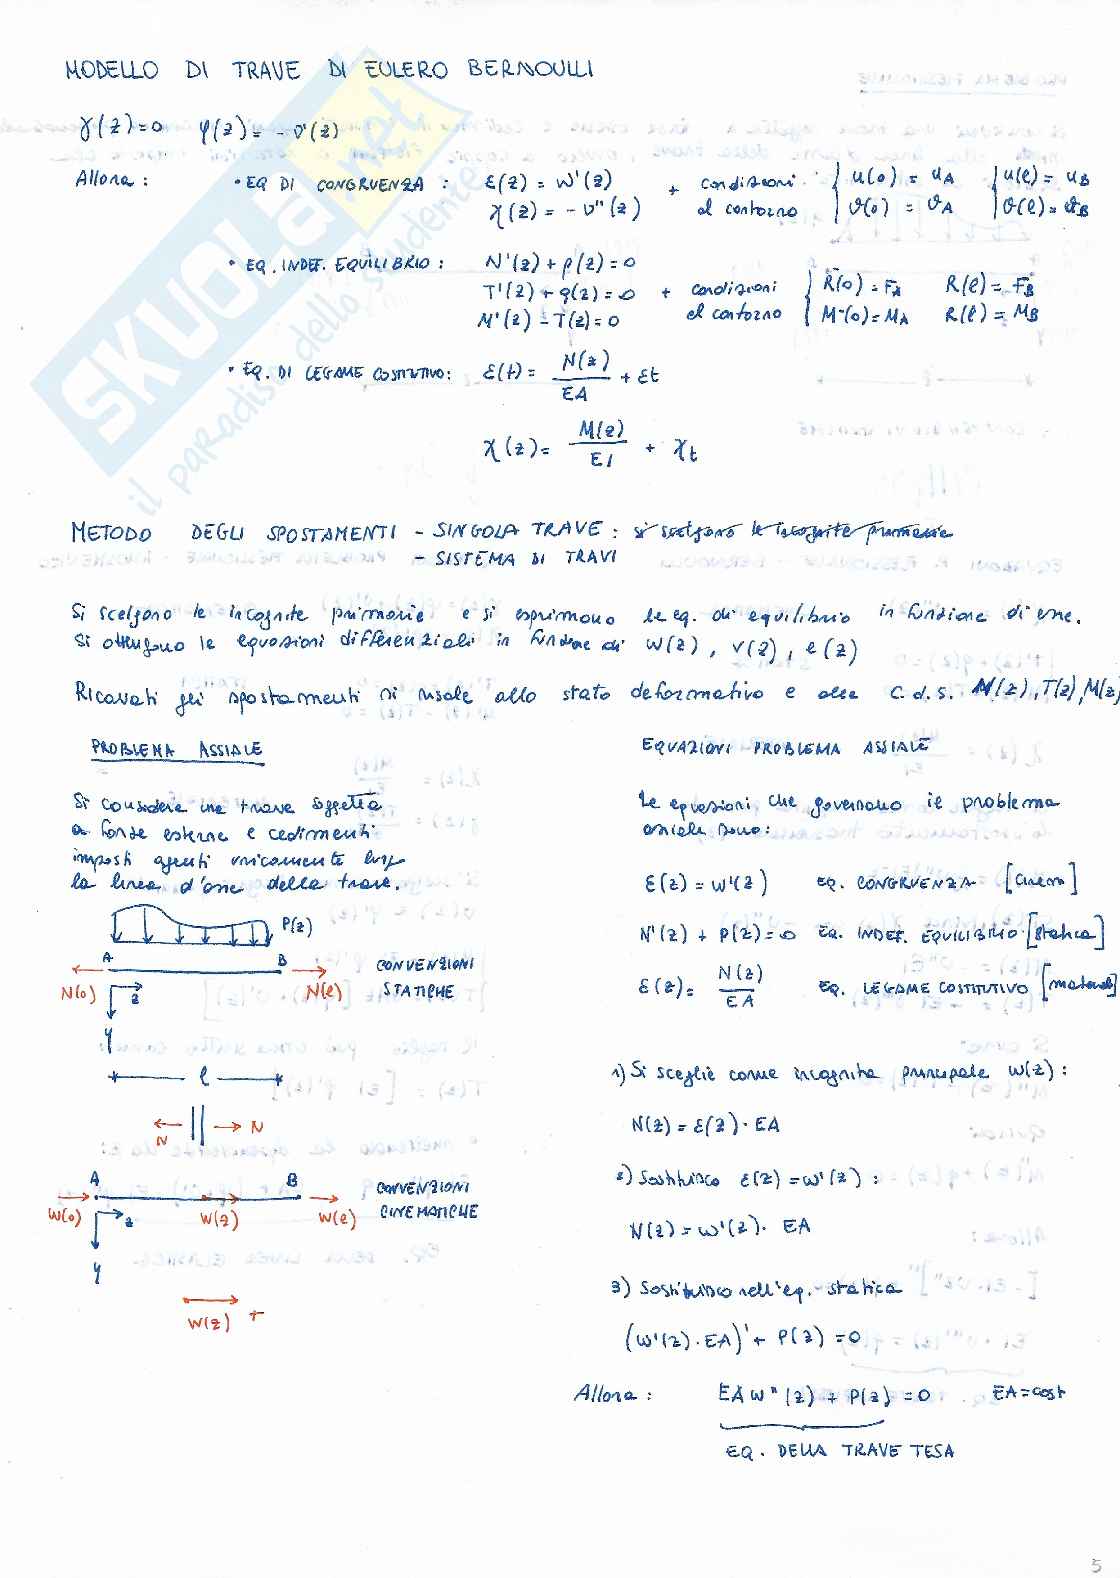 MODELLO DI TRAVE DI EULERO BERNOULLI
γ(z)=0 φ(z)= - v'(z)
Allora : • EQ DI CONGRUENZA : ε(z) = w'(z) + condizioni { u(0) = uA { u(l) = uB
χ(z) = - v''(z) al contorno ϑ(0) = ϑA ϑ(l) = ϑB
• EQ. INDEF. EQUILIBRIO : N'(z) + p(z) = 0
T'(z) + q(z) = 0 + condizioni { R(0) = FA R(l) = FB
M'(z) - T(z) = 0 al contorno M(0) = MA R(l) = MB
• EQ. DI LEGAME COSTITUTIVO : ε(t) = N(z)/EA + εt
χ(z) = M(z)/EI + χt
METODO DEGLI SPOSTAMENTI - SINGOLA TRAVE : si scelgono le incognite primarie
- SISTEMA DI TRAVI
Si scelgono le incognite primarie e si esprimono le eq. di equilibrio in funzione di esse.
Si ottengono le equazioni differenziali in funzione di w(z), v(z), φ(z)
Ricavati gli spostamenti si risale allo stato deformativo e alle C.d.S. N(z), T(z), M(z)
PROBLEMA ASSIALE
Si considera una trave soggetta
a forze esterne e cedimenti
imposti agenti unicamente lungo
la linea d'asse della trave.
P(z)
A B
N(0) N(l)
z
y
CONVENZIONI
STATICHE
l
N N
A B
w(0) w(z) w(l)
z
y
CONVENZIONI
CINEMATICHE
w(z) +
EQUAZIONI PROBLEMA ASSIALE
Le equazioni che governano il problema
assiale sono :
ε(z) = w'(z) EQ. CONGRUENZA [cinem]
N'(z) + P(z) = 0 EQ. INDEF. EQUILIBRIO [statica]
ε(z) = N(z)/EA EQ. LEGAME COSTITUTIVO [materiale]
1) Si sceglie come incognita principale w(z) :
N(z) = ε(z) · EA
2) Sostituisco ε(z) = w'(z) :
N(z) = w'(z) · EA
3) Sostituisco nell'eq. statica
(w'(z) · EA)' + P(z) = 0
Allora : EA w''(z) + P(z) = 0 EA = cost
EQ. DELLA TRAVE TESA
SKUOLA.net
il paradiso dello studente
5